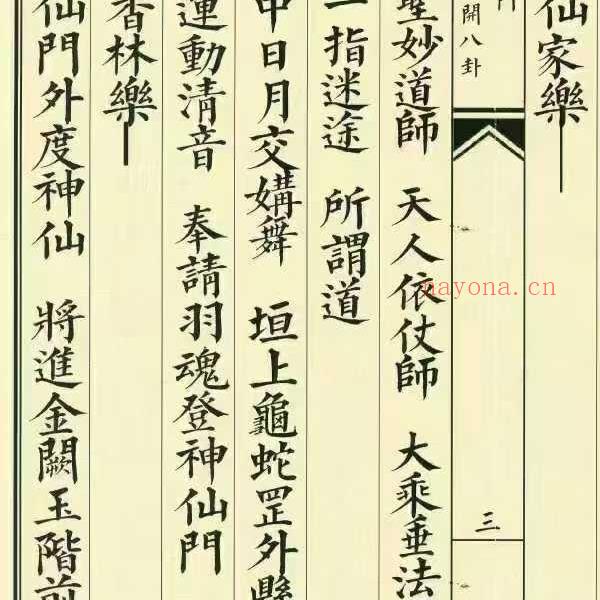 仙家樂
開八卦
三
聖妙道師 天人依仗師 大乘垂法
一指迷途 所謂道
中日月交媾舞 垣上龜蛇罡外縣
運動清音 奉請羽魂登神仙門
香林樂
仙門外度神仙 將進金闕玉階前
nayona.cn